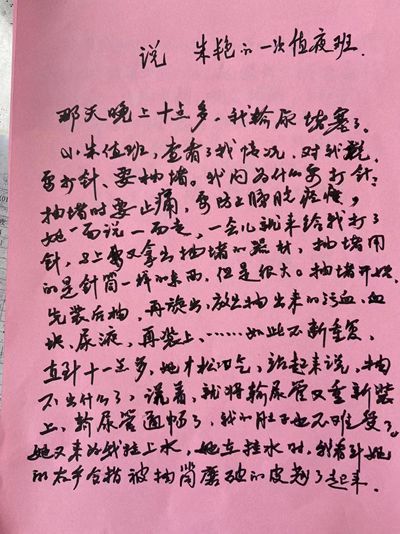 说 朱艳的一次值夜班.
那天晚上十点多，我输尿堵塞了。
小朱值班，查看了我情况，对我说，
要打针、要抽堵。我问为什么要打针：
抽堵时要止痛，要防止膀胱痉挛，
她一面说一面走，一会儿就来给我打了
针，马上要又拿出抽堵的器材，抽堵用
的是针筒一样的东西，但是很大。抽堵开始，
先装后抽，再放出，放出抽出来的污血，血
块、尿液，再装上，……如此不断重复，
直到十一点多，她才松口气，站起来说，抽
不出什么了，说着，就将输尿管又重新装
上，输尿管通畅了，我的肚子也不难受了。
她又来为我挂上水，她在挂水时，我看到她
的右手食指被抽筒磨破的皮翘了起来.